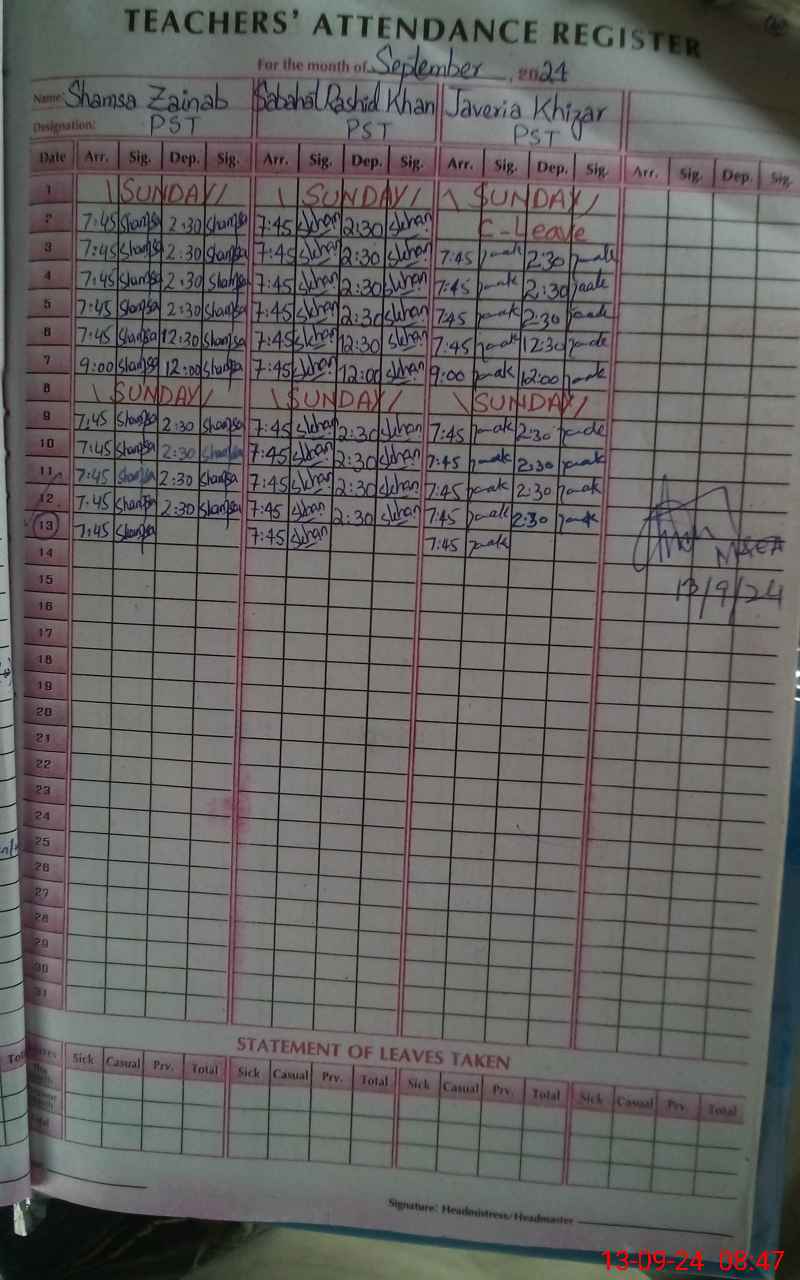 TEACHERS' ATTENDANCE REGISTER
For the month of September, 2024
Name: Shamsa Zainab Sabahat Rashid Khan Javeria Khizar
Designation: PST PST PST
Date Arr. Sig. Dep. Sig. Arr. Sig. Dep. Sig. Arr. Sig. Dep. Sig. Arr. Sig. Dep. Sig.
1 \SUNDAY/ \SUNDAY/ \SUNDAY/
2 7:45 Shamsa 2:30 Shamsa 7:45 Skhan 2:30 Skhan C-Leave
3 7:45 Shamsa 2:30 Shamsa 7:45 Skhan 2:30 Skhan 7:45 2:30
4 7:45 Shamsa 2:30 Shamsa 7:45 Skhan 2:30 Skhan 7:45 2:30
5 7:45 Shamsa 2:30 Shamsa 7:45 Skhan 2:30 Skhan 7:45 2:30
6 7:45 Shamsa 12:30 Shamsa 7:45 Skhan 12:30 Skhan 7:45 12:30
7 9:00 Shamsa 12:00 Shamsa 7:45 Skhan 12:00 Skhan 9:00 12:00
8 \SUNDAY/ \SUNDAY/ \SUNDAY/
9 7:45 Shamsa 2:30 Shamsa 7:45 Skhan 2:30 Skhan 7:45 2:30
10 7:45 Shamsa 2:30 Shamsa 7:45 Skhan 2:30 Skhan 7:45 2:30
11 7:45 Shamsa 2:30 Shamsa 7:45 Skhan 2:30 Skhan 7:45 2:30
12 7:45 Shamsa 2:30 Shamsa 7:45 Skhan 2:30 Skhan 7:45 2:30
13 7:45 Shamsa 7:45 Skhan 7:45
14
MEA
13/9/24
15
16
17
18
19
20
21
22
23
24
25
26
27
28
29
30
31
STATEMENT OF LEAVES TAKEN
Sick Casual Prv. Total Sick Casual Prv. Total Sick Casual Prv. Total Sick Casual Prv. Total
Total
Signature: Headmistress/Headmaster
13-09-24 08:47